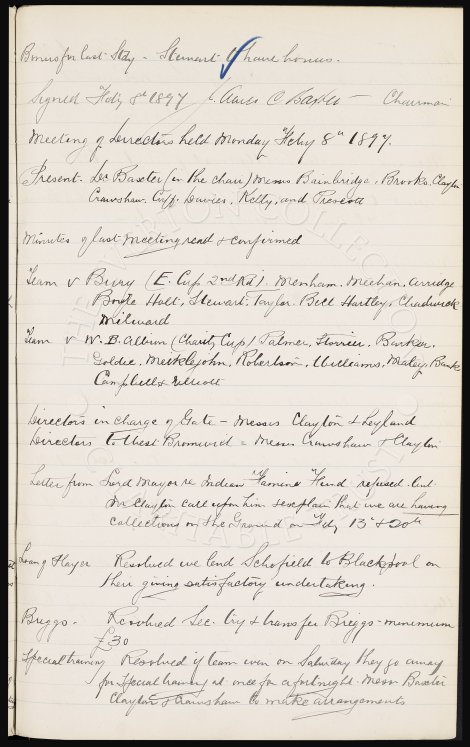 Bonus for last Stdy - Stewart to have bonus.
Signed Feby 8th 1897 James C Baxter - Chairman
Meeting of Directors held Monday Feby 8th 1897.
Present. Dr Baxter (in the chair) Messrs Bainbridge, Brooks, Clayton
Crawshaw, Cuff, Davies, Kelly, and Prescott
Minutes of last meeting read & confirmed
Team v Bury (E. Cup 2nd Rd). Menham, Meehan, Arridge
Boyle Holt, Stewart, Taylor Bell Hartley, Chadwick
Milward
Team v W. B. Albion (Charity Cup) Palmer, Storrier, Barker,
Goldie, Meiklejohn, Robertson, Williams, Maley, Banks
Campbell & Elliott
Directors in charge of Gate - Messrs Clayton & Leyland
Directors to West Bromwich = Messrs Crawshaw & Clayton
Letter from Lord Mayor re Indian Famine Fund refused but
Mr Clayton call upon him & explain that we are having
collections on the Ground on Feby 13th & 20th
Loan of Player Resolved we lend Schofield to Blackpool on
their giving satisfactory undertaking.
Briggs - Resolved Sec. try & transfer Briggs - minimum
£30
Special training Resolved if team win on Saturday they go away
for special training at once for a fortnight. Messrs Baxter
Clayton & Crawshaw to make arrangements